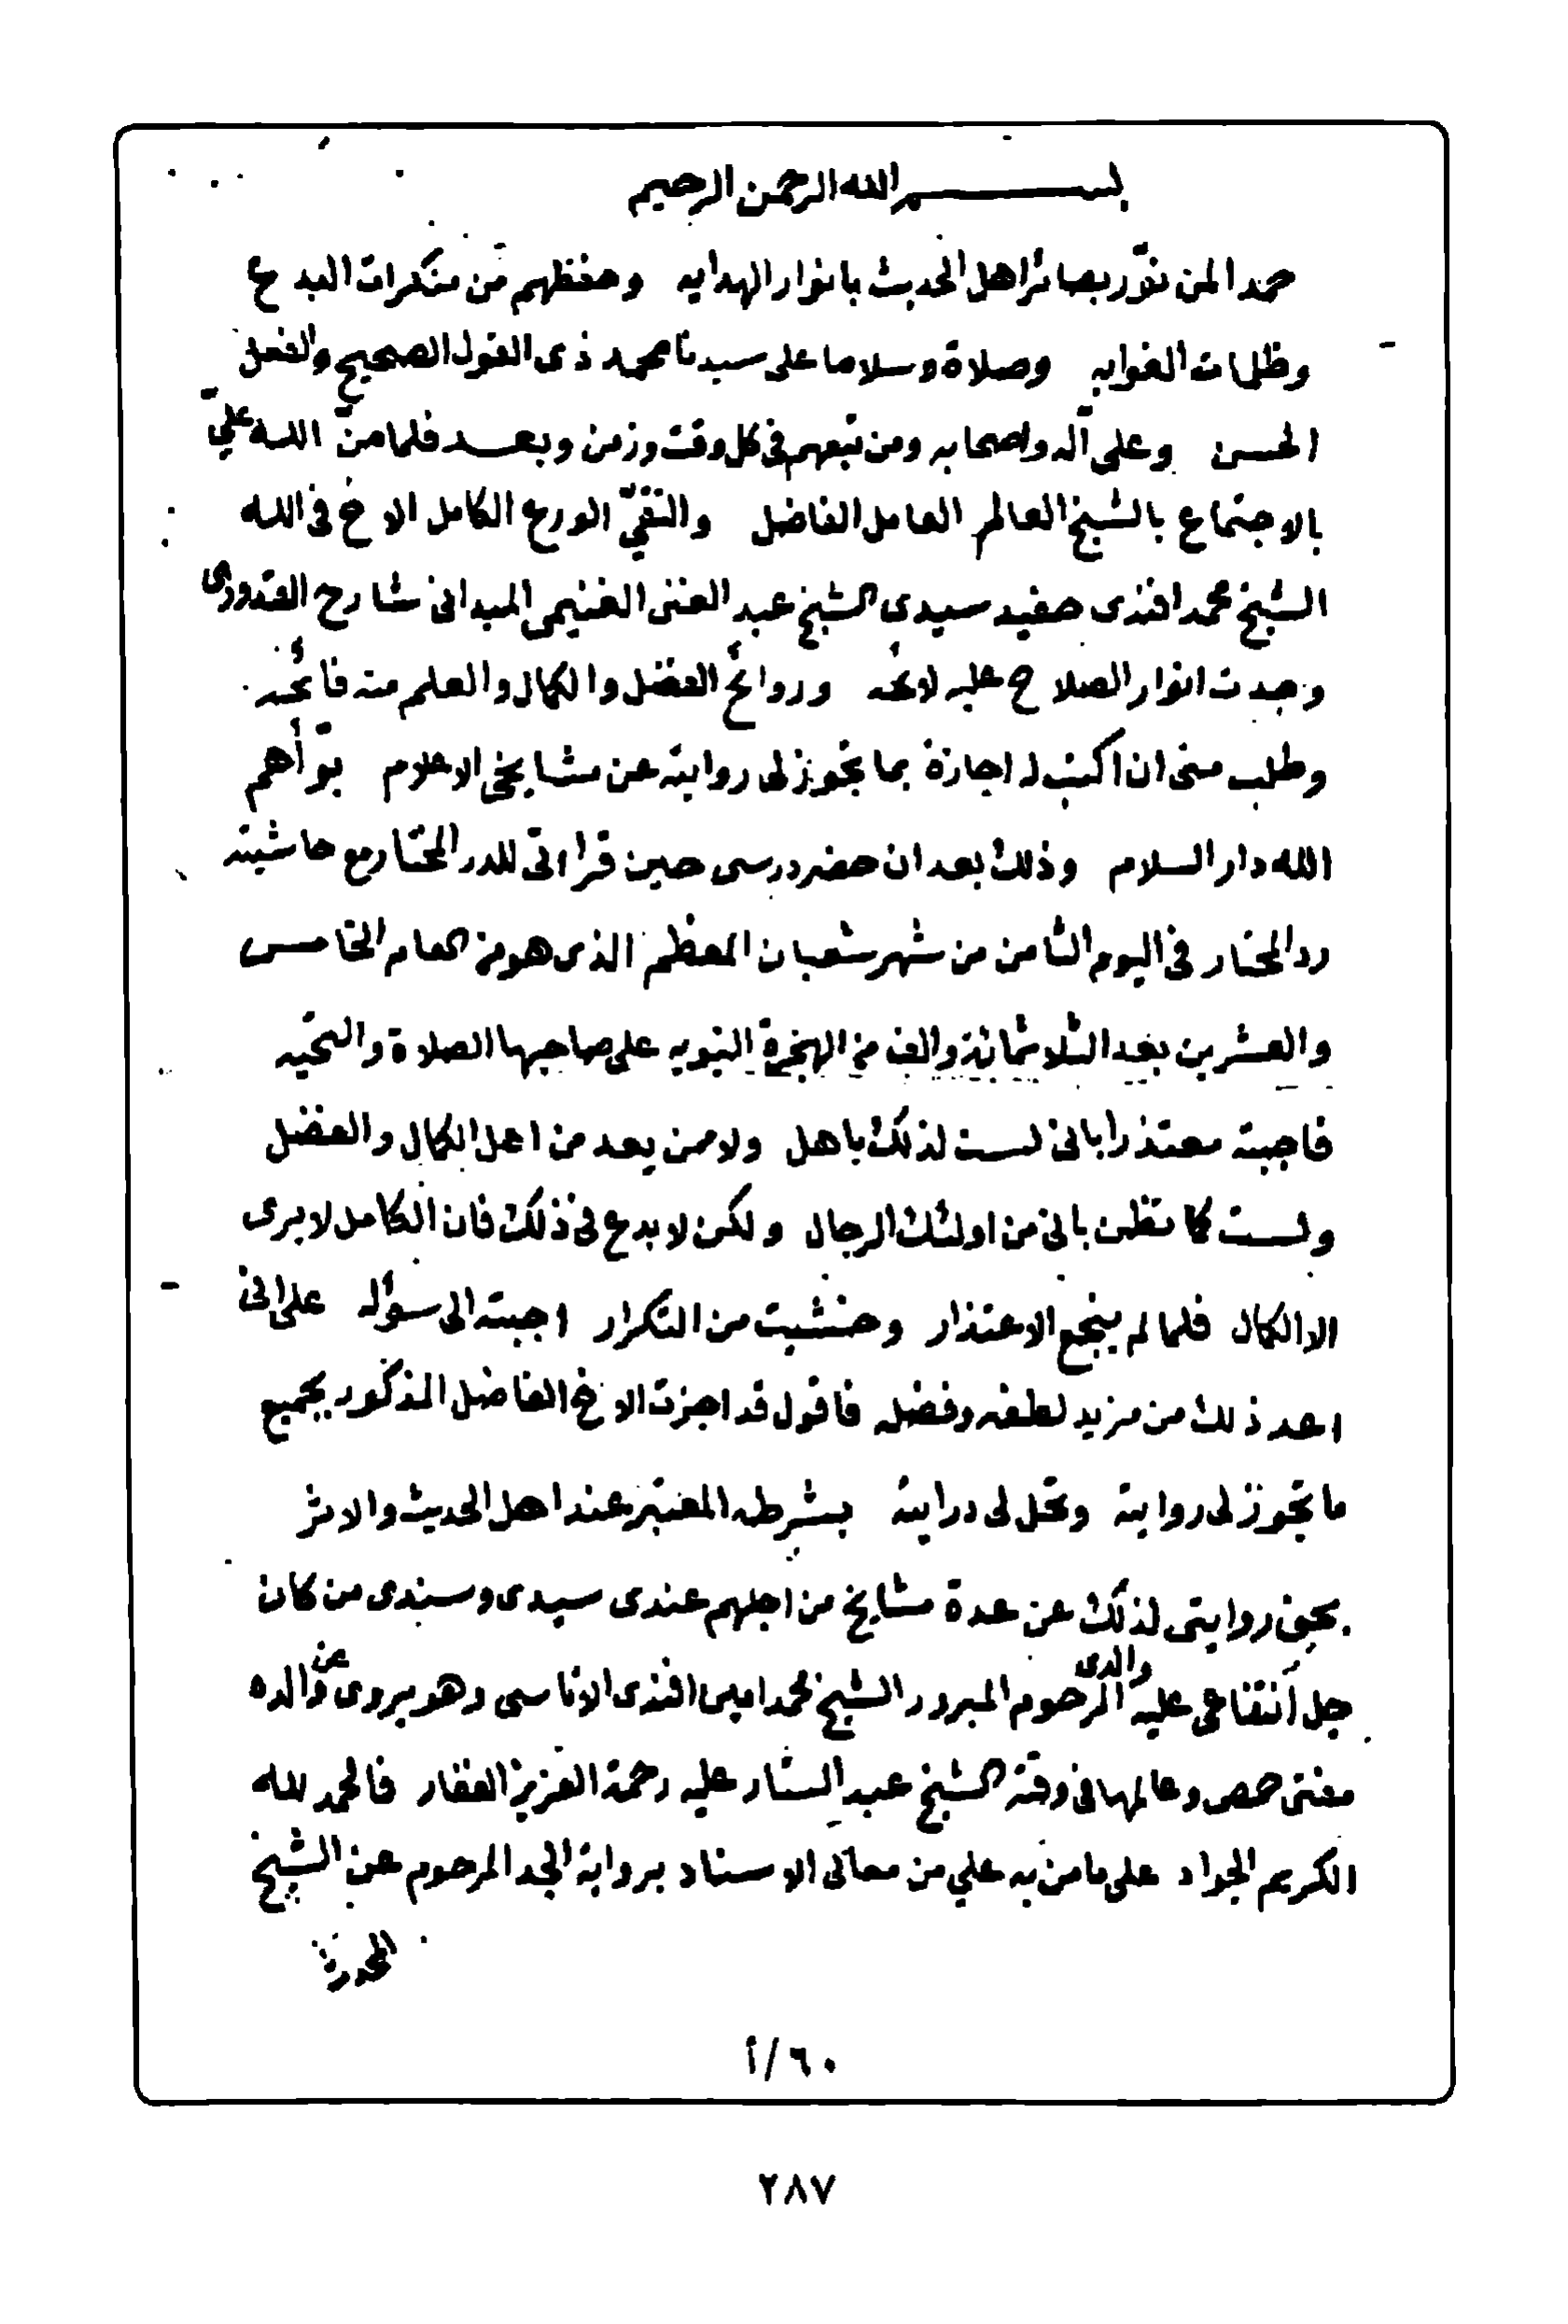 بسم الله الرحمن الرحيم
حمدا لمن نوّر بصائر اهل الحديث بانوار الهدايه وحفظهم من منكرات البدع
وظلمات الغوايه وصلاة وسلاما على سيدنا محمد ذى القول الصحيح والفعل
الحسن وعلى آله واصحابه ومن تبعهم فى كل وقت وزمن وبعد فلما منّ الله عليّ
بالاجتماع بالشيخ العالم العامل الفاضل والتقيّ الورع الكامل الاخ فى الله
الشيخ محمد افندى حفيد سيدى الشيخ عبد الغنى الغنيمى الميدانى شارح القدورى
وجدت انوار الصلاح عليه لائحه وروائح الفضل والكمال والعلم منه فائحه
وطلب منى ان اكتب له اجازة بما تجوز لى روايته عن مشايخى الاعلام بوّأهم
الله دار السلام وذلك بعد ان حضر درسى حين قراءتى للدر المختار مع حاشيته
رد المحتار فى اليوم الثامن من شهر شعبان المعظم الذى هو من العام الخامس
والعشرين بعد الثلاثمائة والف من الهجرة النبويه على صاحبها الصلاة والتحيه
فاجبته معتذرا بانى لست لذلك باهل ولا ممن يعد من اهل الكمال والفضل
ولست كما تظن بانى من اولئك الرجال ولكن لا بدع فى ذلك فان الكامل لا يرى
الا الكمال فلما لم ينجع الاعتذار وخشيت من التكرار اجبته الى سؤاله على انى
اعد ذلك من مزيد لطفه وفضله فاقول قد اجزت الاخ الفاضل المذكور بجميع
ما تجوز لى روايته وتحل لى درايته بشرطه المعتبر عند اهل الحديث والاثر
بحق روايتى لذلك عن عدة مشايخ من اجلهم عندى سيدى وسندى من كان
جل انتفاعى عليه والدى المرحوم المبرور الشيخ محمد امين افندى الاتاسى وهو يروى عن والده
مفتى حمص وعالمها فى وقته الشيخ عبد الستار عليه رحمة العزيز الغفار فالحمد لله
الكريم الجواد على ما من به علي من معالى الاسناد برواية الجد المرحوم عن الشيخ
٦٠/أ
٢٨٧